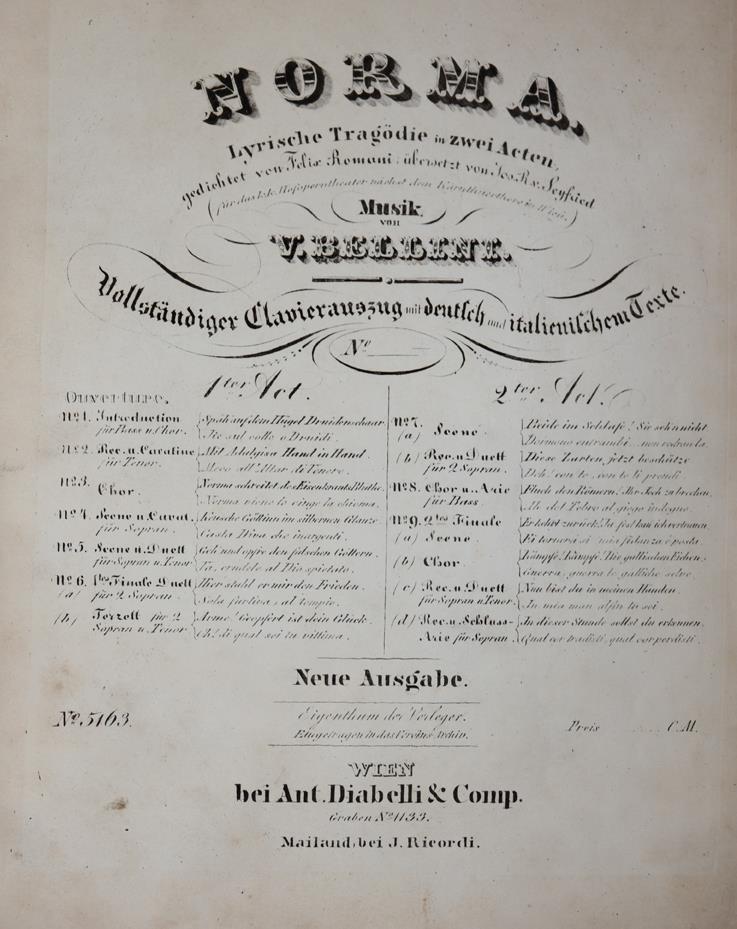 NORMA.
Lyrische Tragödie in zwei Acten,
gedichtet von Felix Romani, übersetzt von Jos. R. v. Seyfried
(für das k.k. Hofoperntheater nächst dem Kärnthnerthore in Wien.)
Musik
von
V. BELLINI.
Vollständiger Clavierauszug mit deutsch und italienischem Texte.
No
1ter Act.
Ouverture.
No 1. Introduction
für Bass u. Chor.
Späh auf dem Hügel Druidenschaar
Ite sul colle o Druidi.
No 2. Rec. u. Cavatine
für Tenor.
Mit Adalgisa Hand in Hand.
Meco all' Altar di Venere.
No 3.
Chor.
Norma schreitet, des Eisenkrauts Bluthe.
Norma viene le cinge la chioma.
No 4. Scene u. Cavat.
für Sopran.
Keusche Göttinn im silbernen Glanze.
Casta Diva che inargenti.
No 5. Scene u. Duett
für Sopran u. Tenor
Geh und opfre den falschen Göttern.
Va, crudele al Dio spietato.
No 6. 1tes Finale Duett
(a) für 2 Sopran.
Hier stahl er mir den Frieden.
Sola furtiva, al tempio.
(b) Terzett für 2
Sopran u. Tenor
Arme! Geopfert ist dein Glück.
Oh! di qual sei tu vittima.
2ter Act.
No 7.
(a) Scene
Beide im Schlafe! Sie sehn nicht
Dormono entrambi... non vedran la.
(b) Rec. u. Duett
für 2 Sopran.
Diese Zarten, jetzt beschütze
Deh! con te, con te li prendi.
No 8. Chor u. Arie
für Bass.
Fluch den Römern, Ihr Joch zu brechen,
Ah del Tebro al giogo indegno.
No 9. 2tes Finale
(a) Scene.
Er kehrt zurück. Ja fest kann ich vertrauen.
Ei tornerà si mia fidanza è posta.
(b) Chor.
Kämpfe! Kämpfe! Die gallischen Eichen.
Guerra, guerra le galliche selve.
(c) Rec. u. Duett
für Sopran u. Tenor.
Nun bist du in meinen Handen.
In mia man alfin tu sei.
(d) Rec. u. Schluss-
Arie für Sopran.
In dieser Stunde sollst du erkennen.
Qual cor tradisti, qual cor perdesti.
Neue Ausgabe.
No. 5163.
Eigenthum der Verleger.
Eingetragen in das Vereins Archiv.
Preis C.M.
WIEN
bei Ant. Diabelli & Comp.
Graben No 1133.
Mailand, bei J. Ricordi.